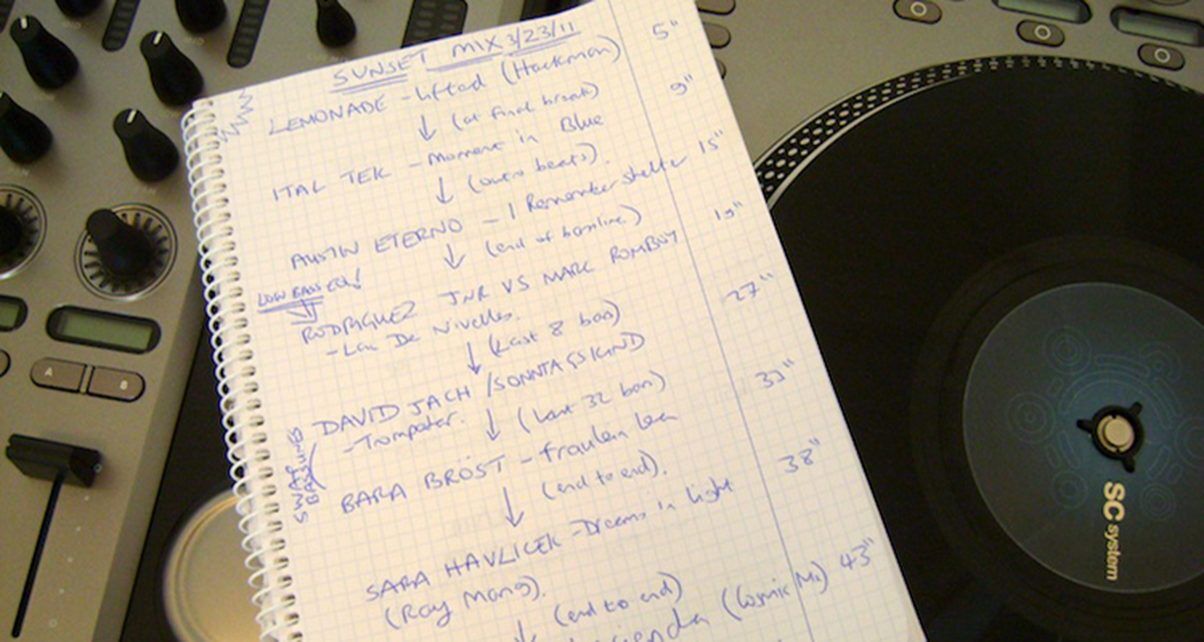 SUNSET MIX 3/23/11
LEMONADE - Lifted (Hackman) 5"
↓ (at final break)
ITAL TEK - Moment in Blue 9"
↓ (outro beats).
AUSTIN ETERNO - I Remember shelter 15"
↓ (end of bassline)
LOW BASS EQ!
RODRIGUEZ JNR VS MARC ROMBOY 19"
- Lac De Nivelles.
↓ (Last 8 bars) 27"
DAVID JACH / SONNTAGSKIND
- Trompeter.
↓ (Last 32 bars) 33"
SWAP BASSLINES
BARA BRÖST - fraulein
↓ (end to end).
SARA HAVLICEK - Dreams in light 38"
(Roy Mang).
↓ (end to end)
(Cosmic M) 43"
A
B
SC system